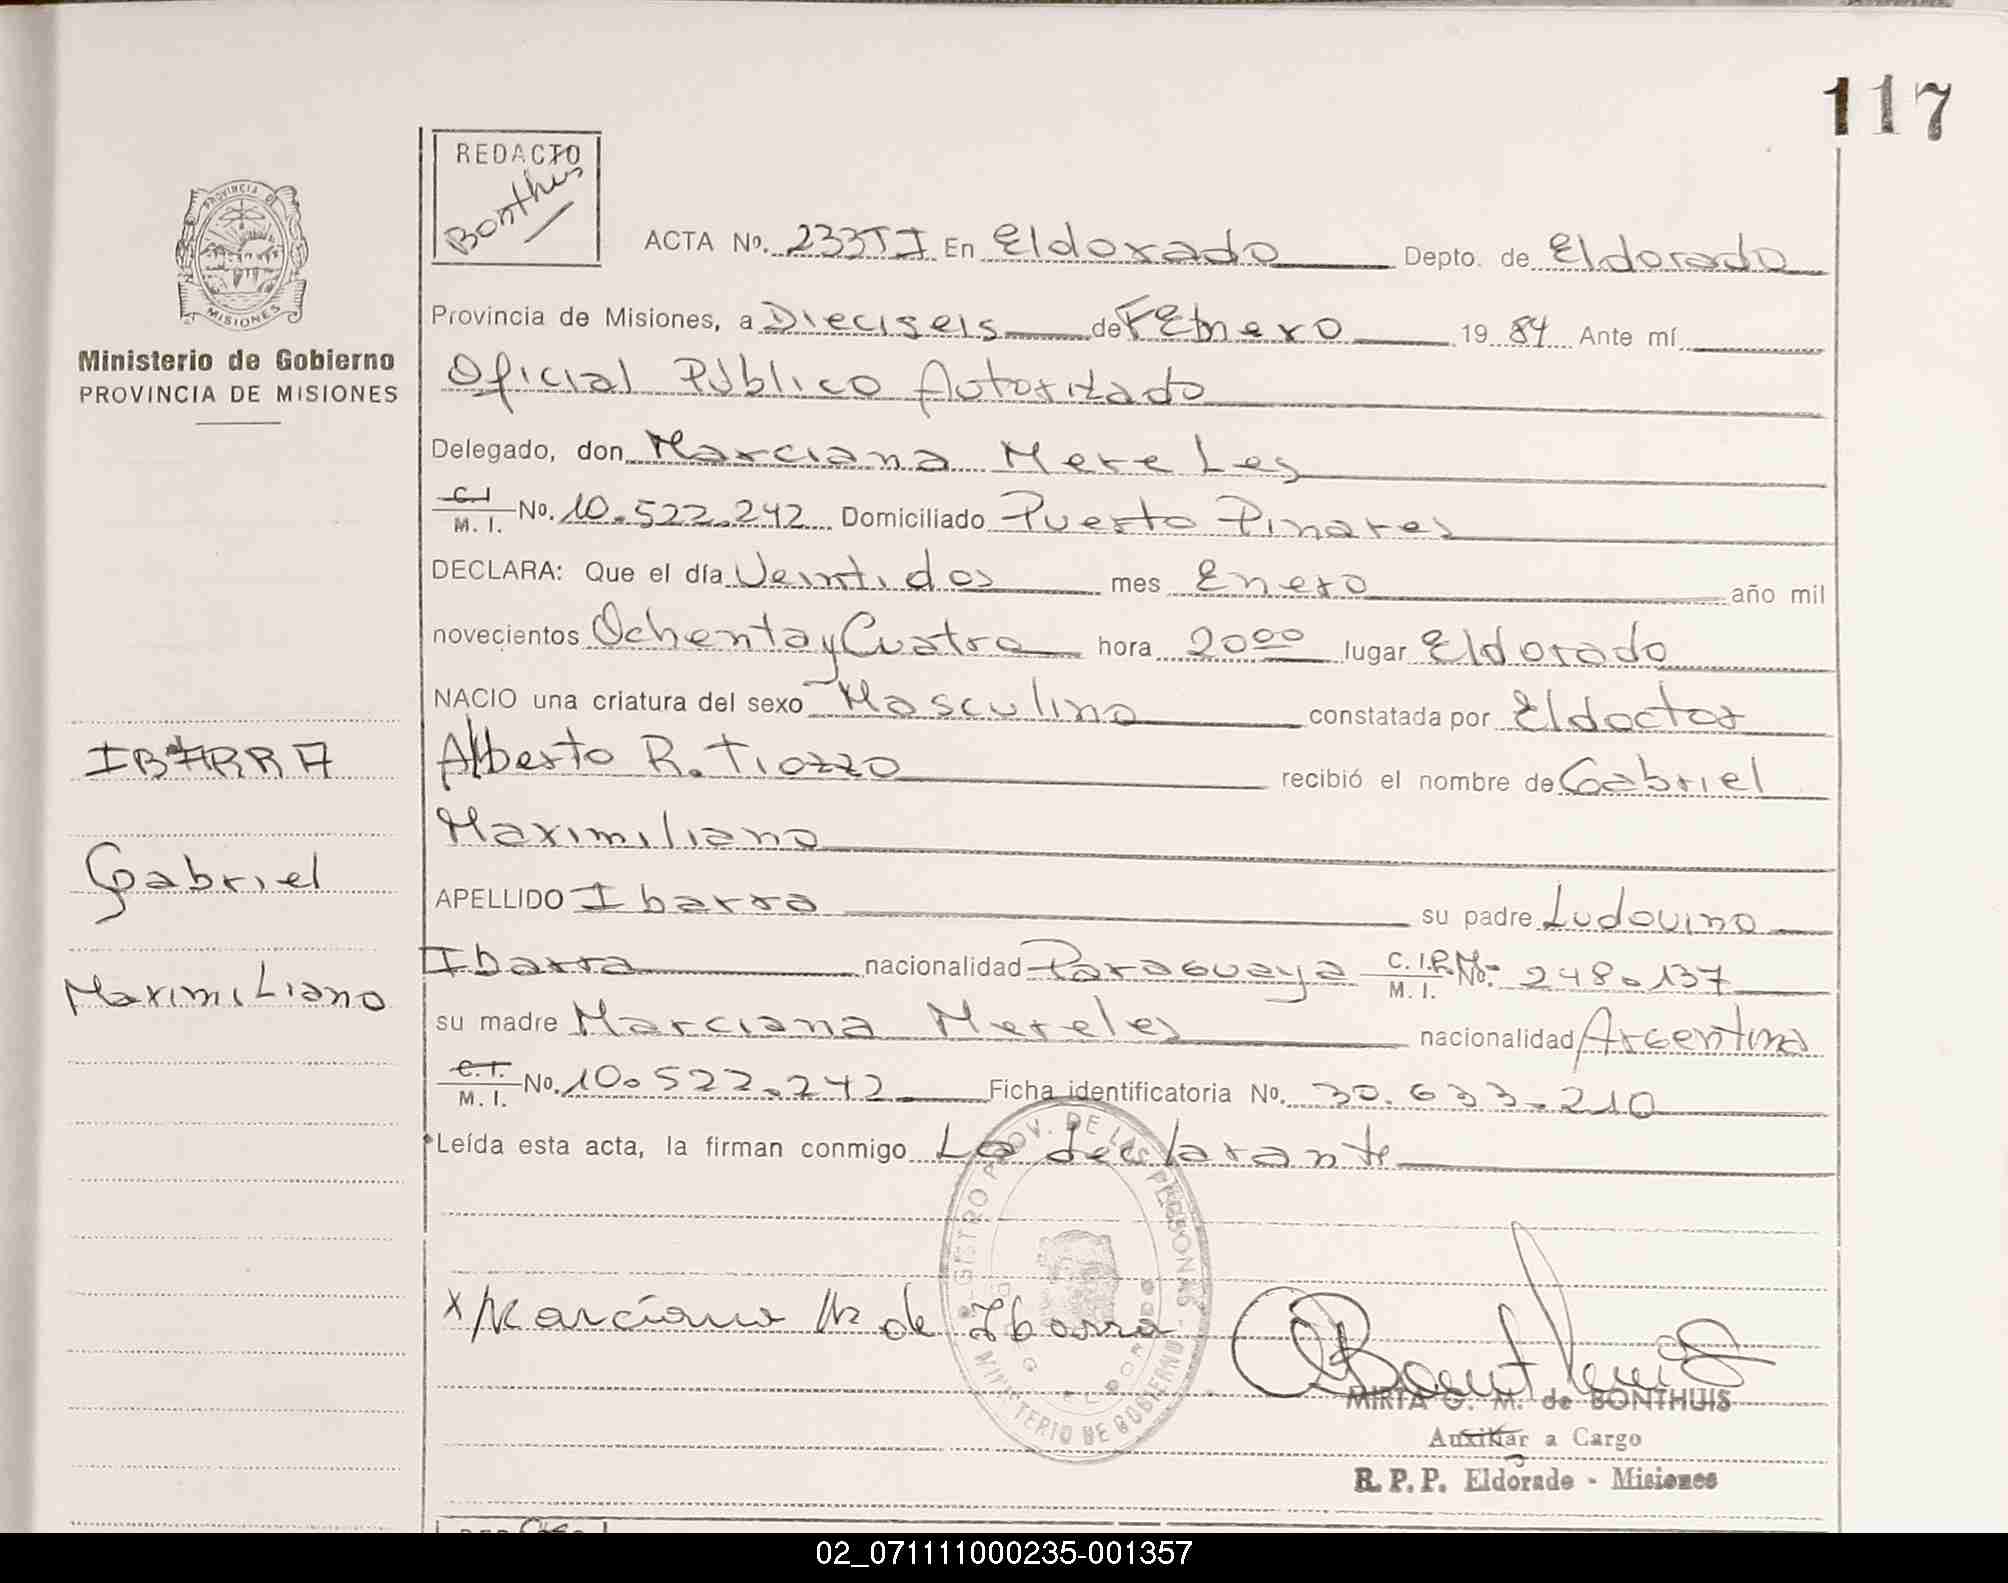 117
REDACTO
Bonthuis
ACTA No. 233TI En Eldorado Depto. de Eldorado
PROVINCIA DE
MISIONES
Ministerio de Gobierno
PROVINCIA DE MISIONES
Provincia de Misiones, a Dieciseis de FEbrero 1984 Ante mí
Oficial Público Autorizado
Delegado, don Marciana Mereles
C.I
M. I. No. 10.522.242 Domiciliado Puerto Pinares
DECLARA: Que el día Veintidos mes Enero año mil
novecientos Ochenta y Cuatro hora 20oo lugar Eldorado
NACIO una criatura del sexo Masculino constatada por Eldoctor
Alberto R. Tiozzo recibió el nombre de Gabriel
Maximiliano
APELLIDO Ibarra su padre Ludovino
Ibarra nacionalidad Paraguaya C. I.P.M. No. 248.137
M. I.
su madre Marciana Mereles nacionalidad Argentina
C.I.
M. I. No. 10.522.242 Ficha identificatoria No. 30.633.210
Leída esta acta, la firman conmigo La declarante
IBARRA
Gabriel
Maximiliano
REGISTRO PROV. DE LAS PERSONAS
MINISTERIO DE GOBIERNO
ELDORADO
x Marciana M de Ibarra
MIRTA G. M. de BONTHUIS
Auxiliar a Cargo
R. P. P. Eldorado - Misiones
02_071111000235-001357